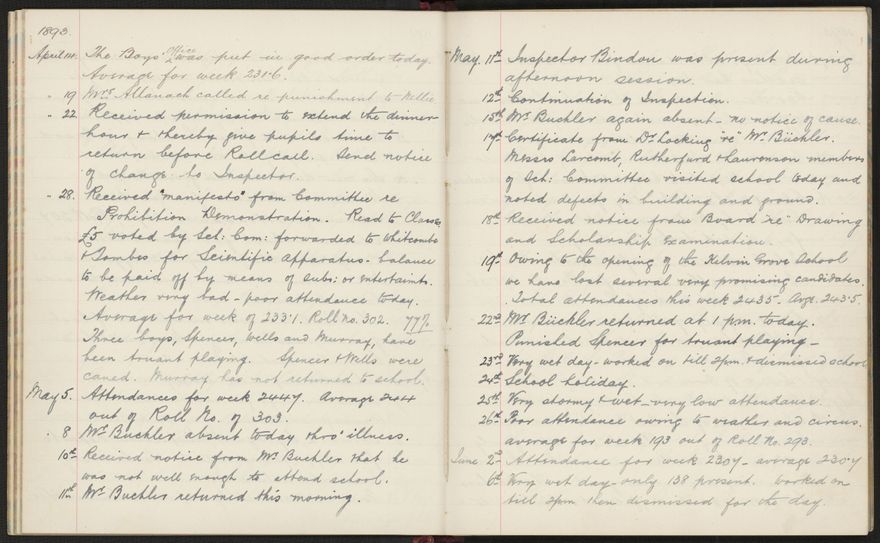 1893.
April 14. The Boys' office was put in good order today.
Average for week 231·6.
" 19 Mrs Allanach called re punishment to Nellie.
" 22 Received permission to extend the dinner
hour & thereby give pupils time to
return before Roll call. Send notice
of change to Inspector.
" 28. Received "manifesto" from Committee re
Prohibition Demonstration. Read to Classes.
£5 voted by Sch: Com: forwarded to Whitcombe
& Tombs for Scientific apparatus - balance
to be paid off by means of subs: or entertaints.
Weather very bad - poor attendance today.
Average for week of 233·1. Roll no. 302. 77%
Three boys, Spencer, Wells and Murray, have
been truant playing. Spencer & Wells were
caned. Murray has not returned to school.
May 5. Attendances for week 2447. Average 244
out of Roll No. of 303.
" 8 Mr Buchler absent today thro' illness.
10th Received notice from Mr Buchler that he
was not well enough to attend school.
11th Mr Buchler returned this morning.
May. 11th Inspector Bindon was present during
afternoon session.
12th Continuation of Inspection.
15th Mr Buchler again absent - no notice of cause.
17th Certificate from Dr Locking "re" Mr Büchler.
Messrs Larcomb, Rutherfurd & Laurenson members
of Sch: Committee visited school today and
noted defects in building and ground.
18th Received notice from Board "re" Drawing
and Scholarship Examination.
19th Owing to the opening of the Kelvin Grove School
we have lost several very promising candidates.
Total attendances this week 2435. Avge. 243·5.
22nd Mr Büchler returned at 1 pm. today.
Punished Spencer for truant playing -
23rd Very wet day - worked on till 2pm. & dismissed school
24th School holiday.
25th Very stormy & wet - very low attendance.
26th Poor attendance owing to weather and circus.
average for week 193 out of Roll No. 293.
June 2nd Attendance for week 2307 - average 230·7
6th Very wet day - only 138 present. worked on
till 2pm then dismissed for the day.